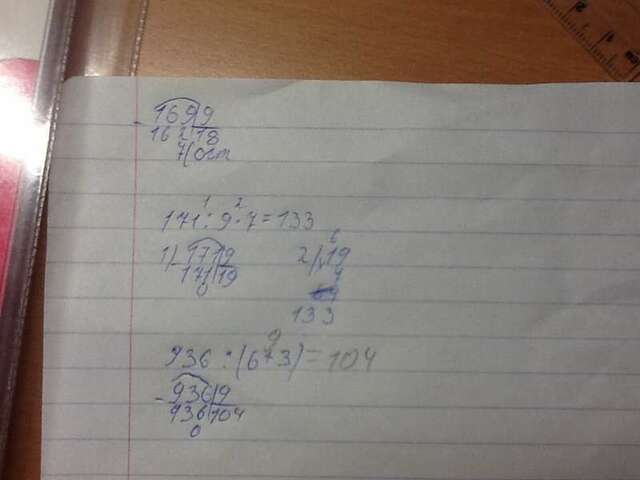 - 169|9
162|18
7(ост
1 2
171:9·7=133
1) - 171|9 2) 19
171|19 7
0 133
9
936:(6+3)=104
- 936|9
936|104
0